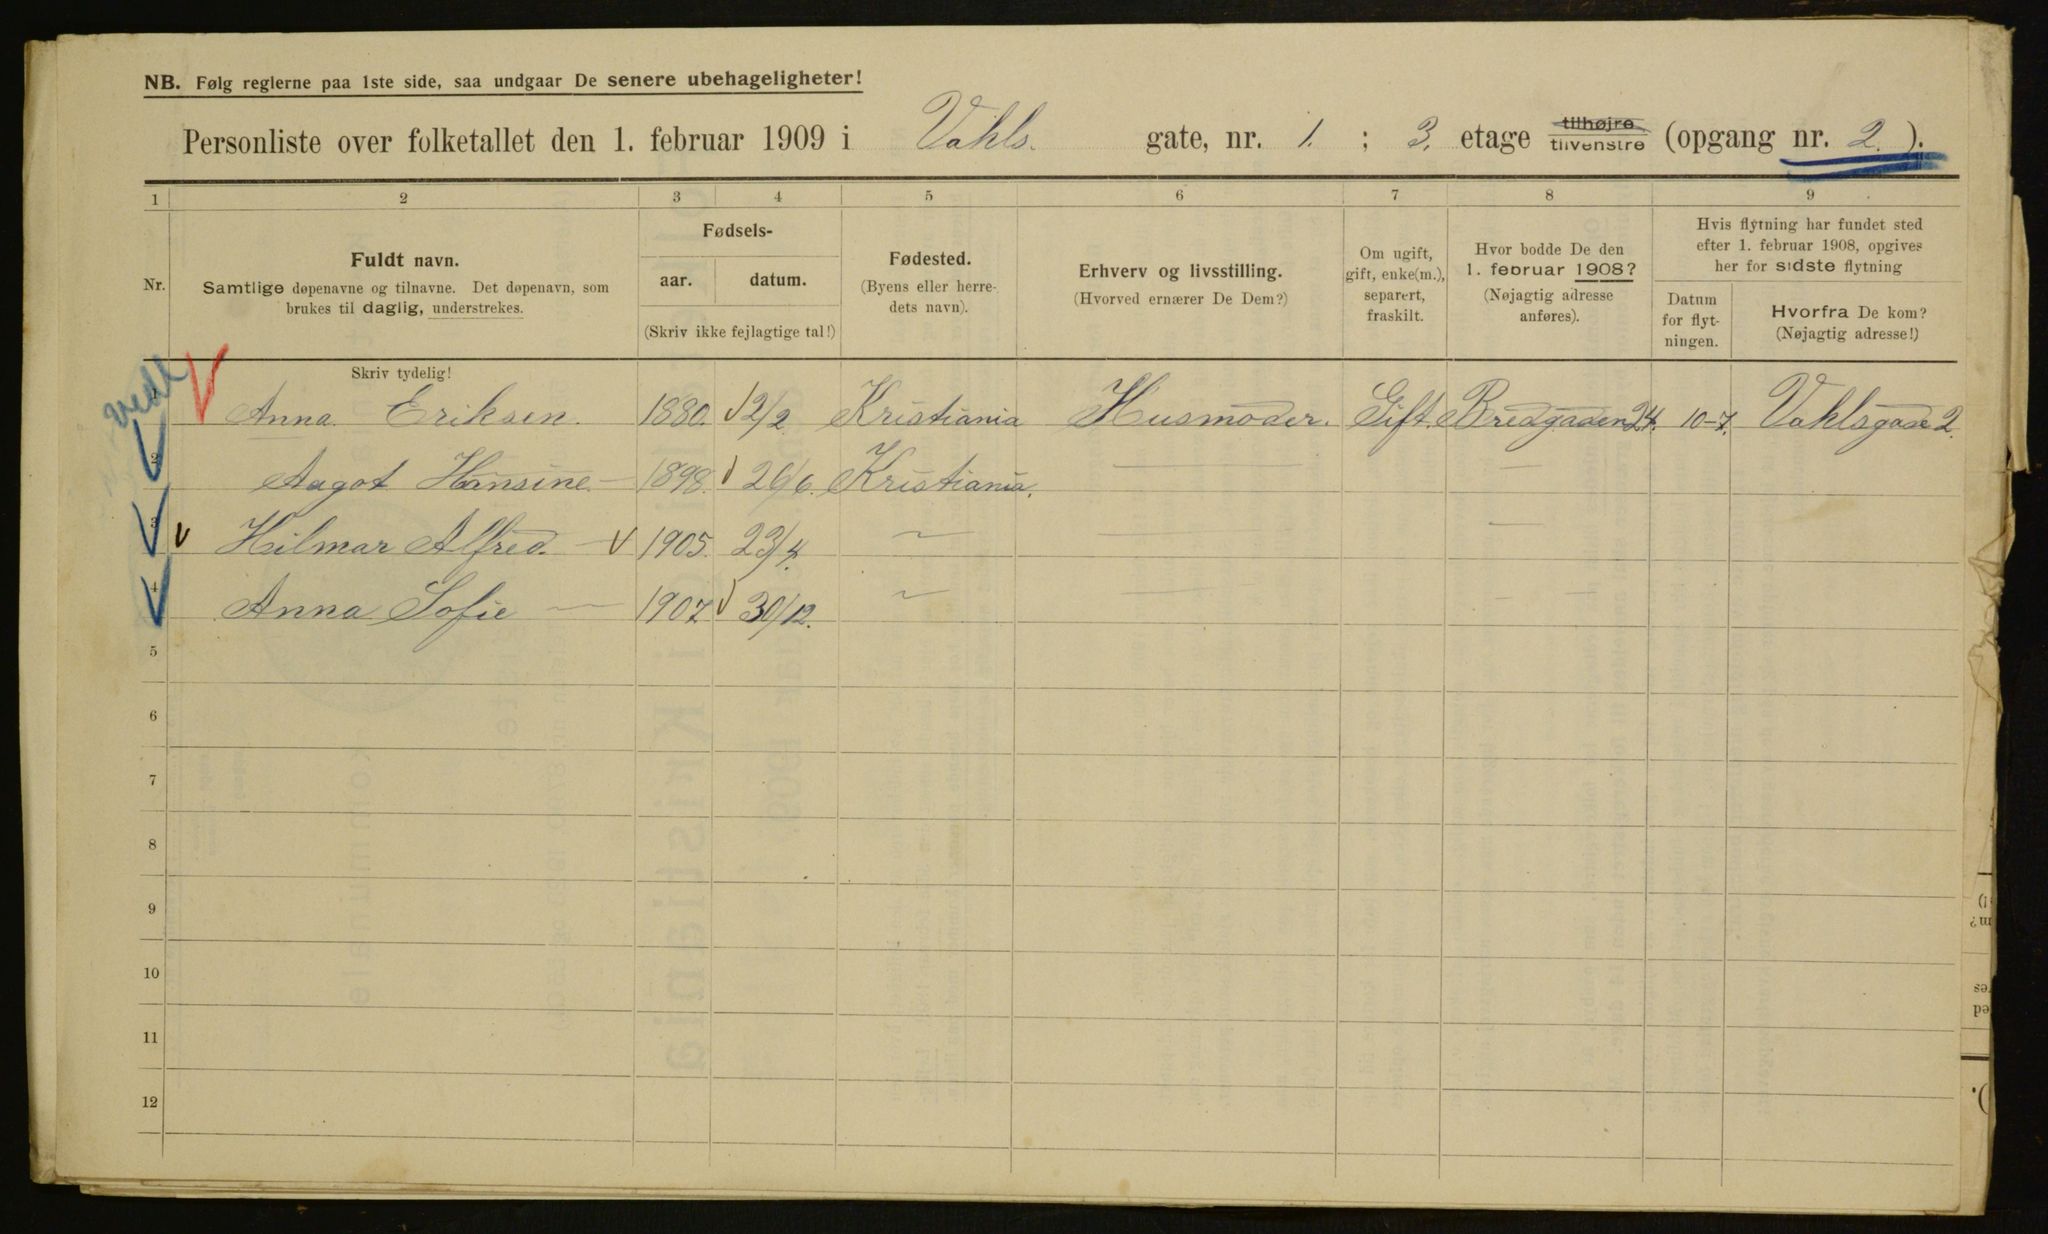 NB. Følg reglerne paa 1ste side, saa undgaar De senere ubehageligheter!
Personliste over folketallet den 1. februar 1909 i Vahls. gate, nr. 1. ; 3. etage tilhøjre tilvenstre (opgang nr. 2. ).
1 2 3 4 5 6 7 8 9
Nr.
Fuldt navn.
Samtlige døpenavne og tilnavne. Det døpenavn, som
brukes til daglig, understrekes.
Skriv tydelig!
Fødsels-
aar. datum.
(Skriv ikke fejlagtige tal!)
Fødested.
(Byens eller herre-
dets navn).
Erhverv og livsstilling.
(Hvorved ernærer De Dem?)
Om ugift,
gift, enke(m.),
separert,
fraskilt.
Hvor bodde De den
1. februar 1908?
(Nøjagtig adresse
anføres).
Hvis flytning har fundet sted
efter 1. februar 1908, opgives
her for sidste flytning
Datum
for flyt-
ningen.
Hvorfra De kom?
(Nøjagtig adresse!)
1 Anna Eriksen. 1880. 12/2 Kristiania Husmoder. Gift. Bredgaden 24. 10-7. Vahlsgade 2.
2 Aagot Hansine — 1898. 26/6. Kristiania. — —
3 Hilmar Alfred. — 1905. 23/4. — — —
4 Anna Sofie — 1907 30/12. — — — —
5
6
7
8
9
10
11
12